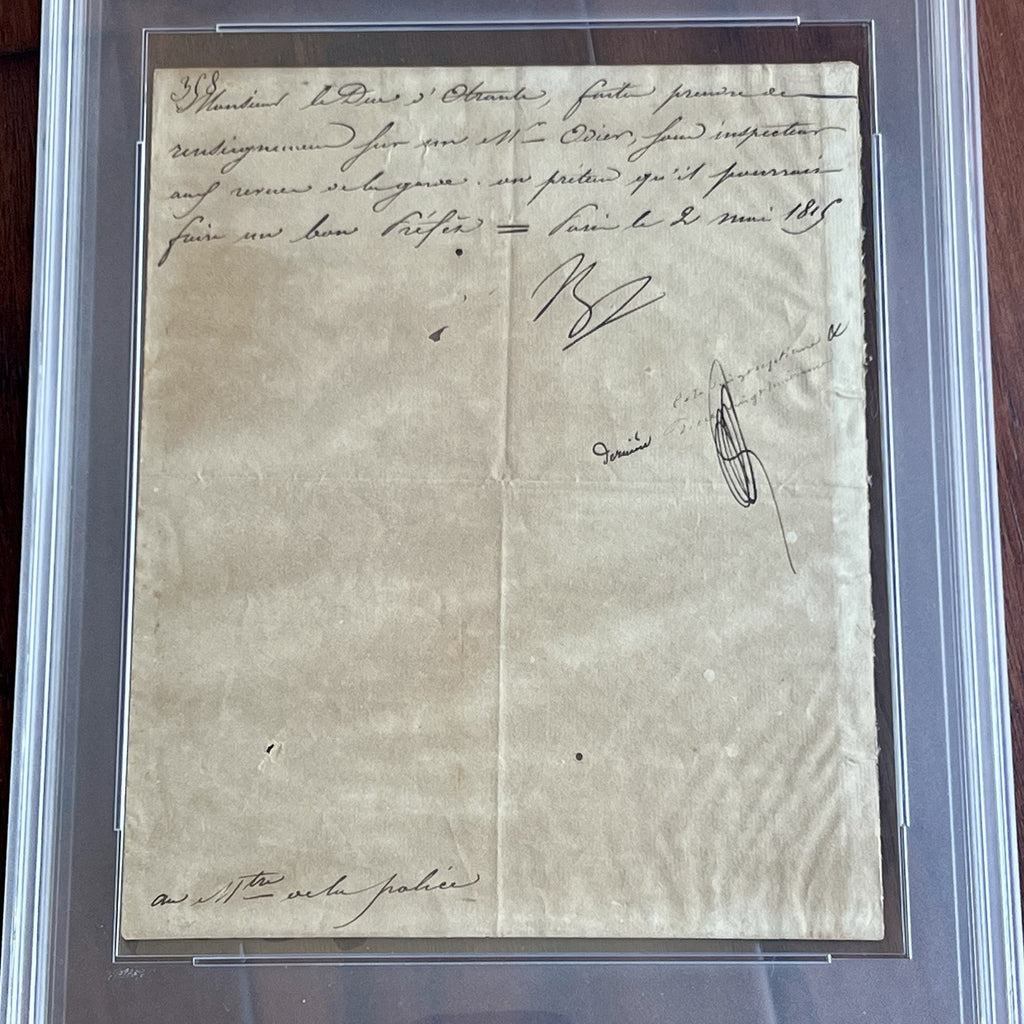 358
Monsieur le Duc d'Otrante, faites prendre des
renseignemens sur un Mr Odier, sous inspecteur
aux revues de la garde. on prétend qu'il pourrait
faire un bon Préfet = Paris le 2 mai 1815
Np
dernière
au Mtre de la police